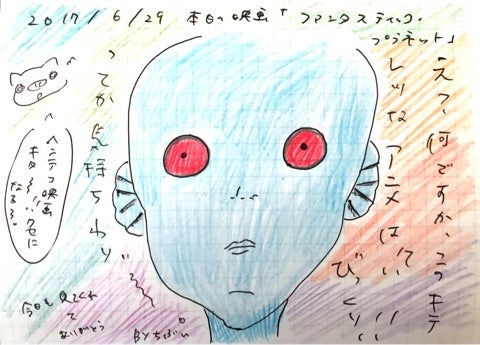 2017/6/29 本日の映画「ファンタスティック・
プラネット」
えっ、何ですか、コラキテ
レツなアニメは!?
びっくり!!
ってか気持ちわり
ヘンテコ映画
キター!!!クセに
なるう。
今日も見てくれ
てありがとう
BYちぷい